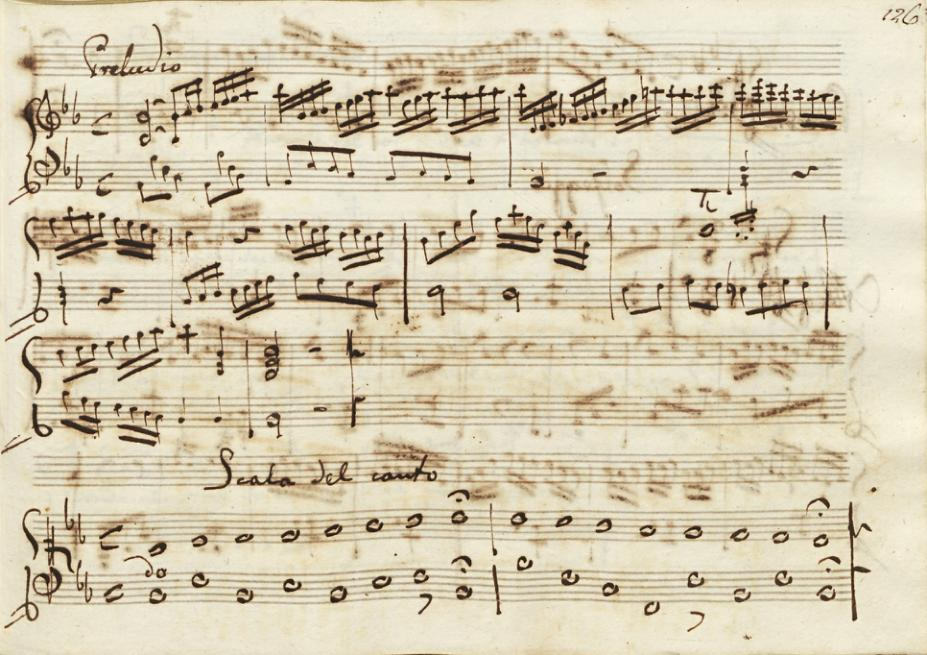 126
Preludio
Tr
Scala del canto
do
7
7